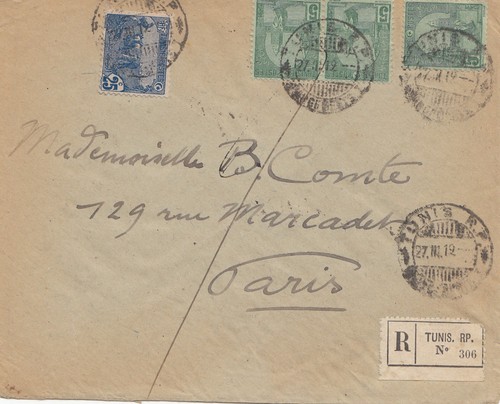 25
5
5
5
TUNIS R.P.
27.III.19
Mademoiselle B. Comte
129 rue Marcadet
Paris
TUNIS R.P.
27.III.19
R
TUNIS. RP.
Nº 306